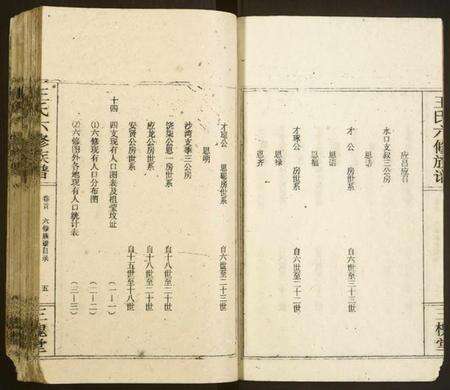 王氏六修族谱
三槐堂
应忌应召
水口支叔三公房
恩法
才公 房世系 自六世至二十三世
恩诺
恩辐
才琢公 房世系 自六世至二十三世
恩禄
恩齐
才琢公 恩赐房世系 自六世至二十三世
恩明
沙湾支季三公房
饶梁公愿一房世系 自十八世至二十世
应龙公房世系 自十八世至二十世
安贤公房世系 自十五世至十八世
十四 四支现有人口图表及祖茔坟址
(1)六修现有人口分布图 (二—1)
(2)六修图外各地现有人口统计表 (二—三)
王氏六修族谱
卷首 六修族谱目录
五
三槐堂